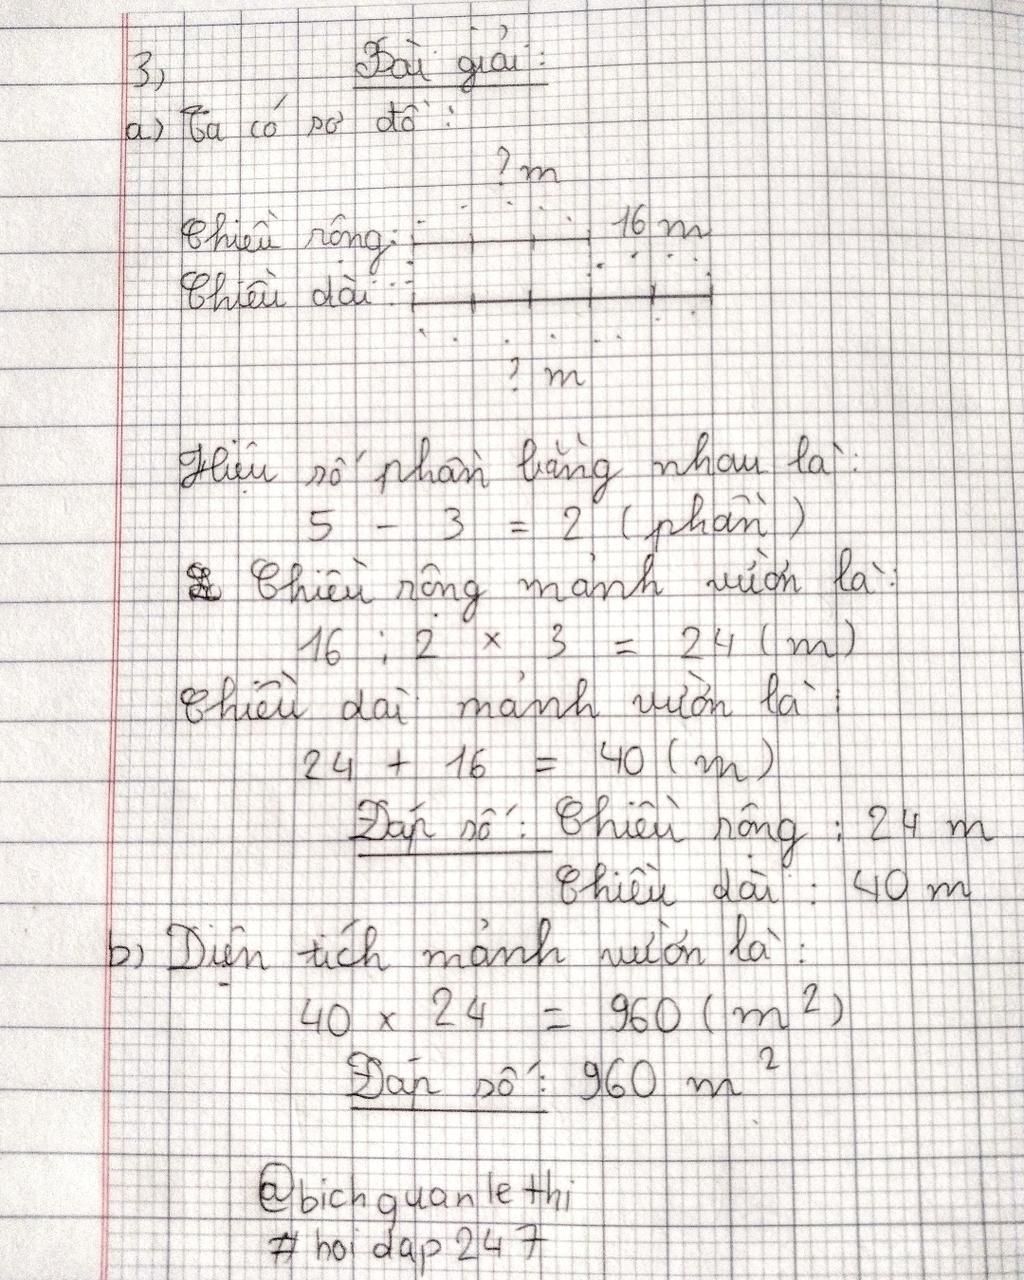 3, Bài giải:
a) Ta có sơ đồ:
? m
Chiều rộng: 16 m
Chiều dài:
? m
Hiệu số phần bằng nhau là:
5 - 3 = 2 (phần)
Chiều rộng mảnh vườn là:
16 : 2 x 3 = 24 (m)
Chiều dài mảnh vườn là:
24 + 16 = 40 (m)
Đáp số: Chiều rộng: 24 m
Chiều dài: 40 m
b) Diện tích mảnh vườn là:
40 x 24 = 960 (m²)
Đáp số: 960 m²
@bichquanlethi
#hoidap247